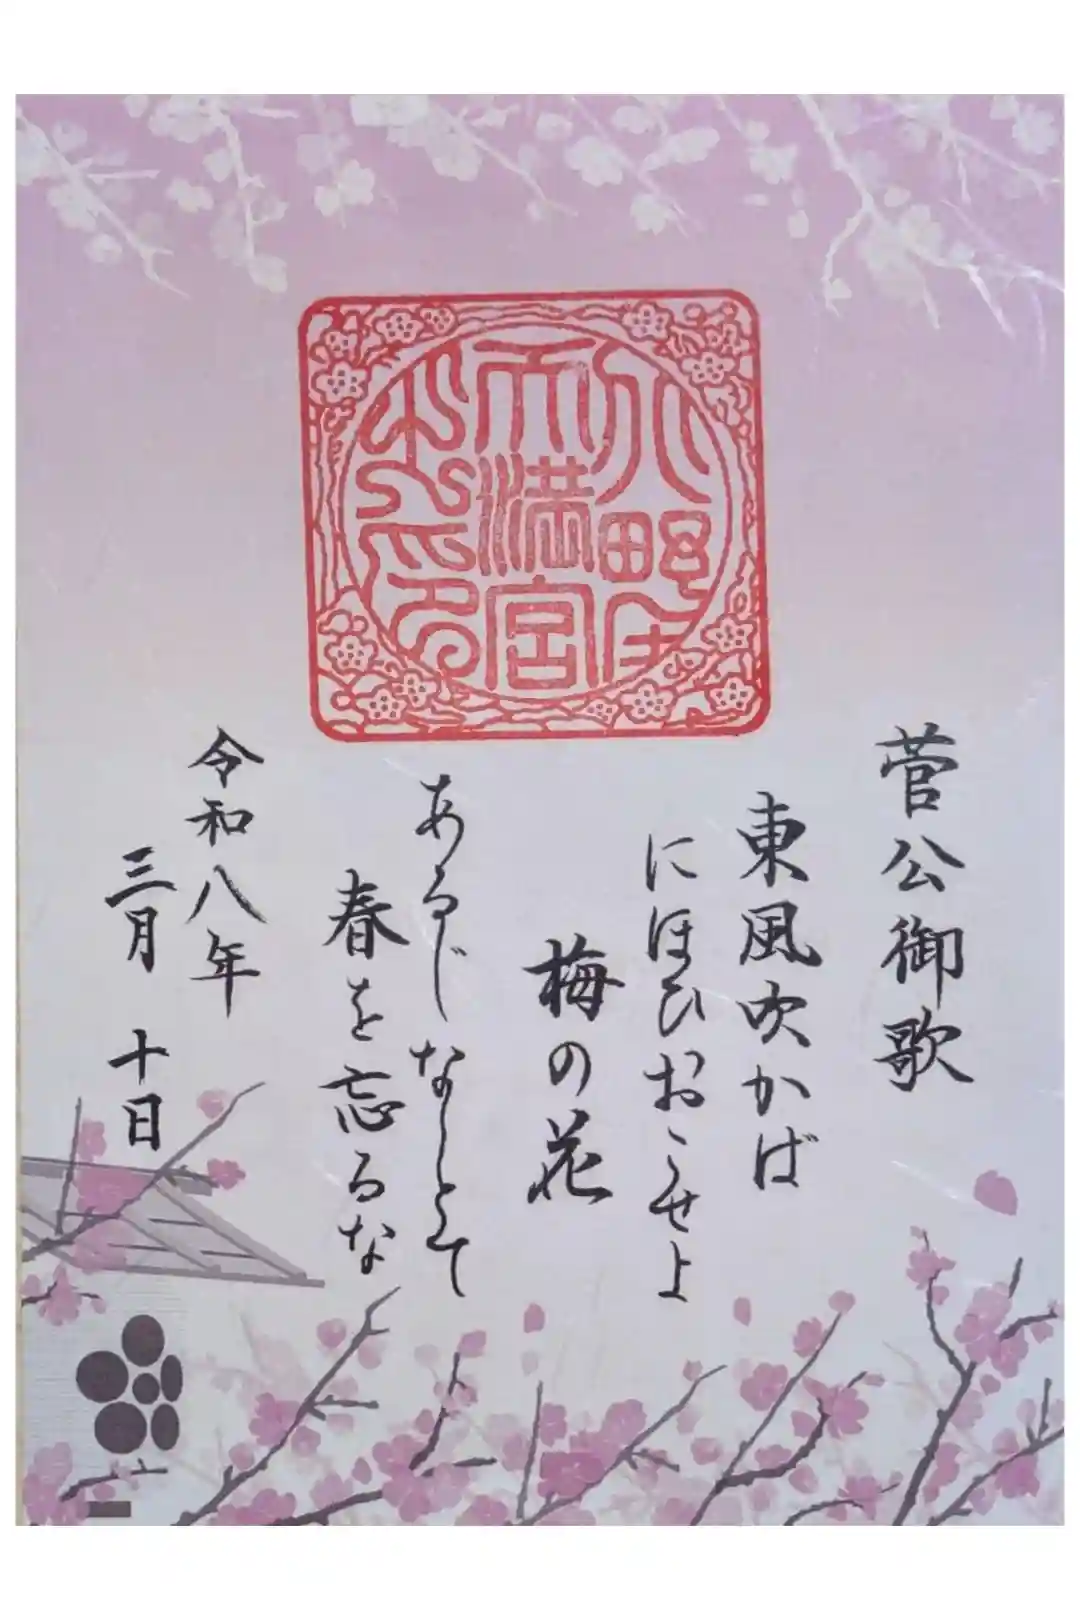 天満宮
菅公御歌
東風吹かば
にほひおこせよ
梅の花
あるじなしとて
春を忘るな
令和八年
三月 十日